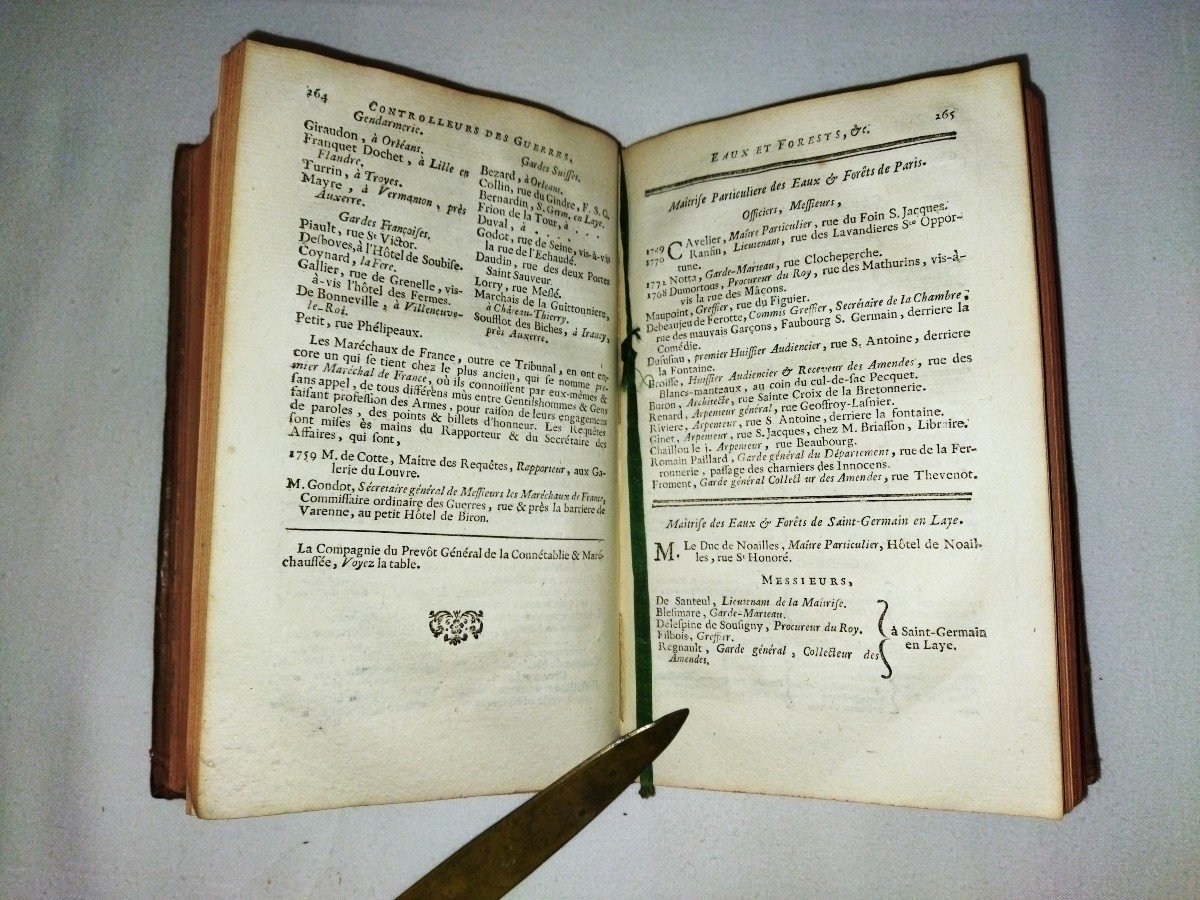 264 CONTROLLEURS DES GUERRES,
Gendarmerie.
Giraudon, à Orléans.
Franquet Dochet, à Lille en
Flandre.
Turrin, à Troyes.
Mayre, à Vermanton, près
Auxerre.
Gardes Françoises.
Piault, rue St Victor.
Desboves, à l'Hôtel de Soubise.
Coynard, la Fere.
Gallier, rue de Grenelle, vis-
à-vis l'hôtel des Fermes.
De Bonneville, à Villeneuve-
le-Roi.
Petit, rue Phélipeaux.
Gardes Suisses.
Bezard, à Orleans.
Collin, rue du Gindre, F. S. G.
Bernardin, S. Germ. en Laye.
Frion de la Tour, à . . .
Duval, à . . . . .
Godot, rue de Seine, vis-à-vis
la rue de l'Echaudé.
Daudin, rue des deux Portes
Saint Sauveur.
Lorry, rue Meslé.
Marchais de la Guittonniere,
à Château-Thierry.
Soufflot des Biches, à Irancy,
près Auxerre.
Les Maréchaux de France, outre ce Tribunal, en ont en-
core un qui se tient chez le plus ancien, qui se nomme pre-
mier Maréchal de France, où ils connoissent par eux-mêmes &
sans appel, de tous différens mûs entre Gentilshommes & Gens
faisant profession des Armes, pour raison de leurs engagemens
de paroles, des points & billets d'honneur. Les Requêtes
sont mises ès mains du Rapporteur & du Secrétaire des
Affaires, qui sont,
1759 M. de Cotte, Maître des Requêtes, Rapporteur, aux Ga-
lerie du Louvre.
M. Gondot, Sécretaire général de Messieurs les Maréchaux de France,
Commissaire ordinaire des Guerres, rue & près la barriere de
Varenne, au petit Hôtel de Biron.
La Compagnie du Prevôt Général de la Connétablie & Maré-
chaussée, Voyez la table.
EAUX ET FORESTS, &c. 265
Maîtrise Particuliere des Eaux & Forêts de Paris.
Officiers, Messieurs,
1749 CAvelier, Maître Particulier, rue du Foin S. Jacques.
1770 Ransin, Lieutenant, rue des Lavandieres Ste Oppor-
tune.
1772 Notta, Garde-Marteau, rue Clocheperche.
1768 Dumortous, Procureur du Roy, rue des Mathurins, vis-à-
vis la rue des Mâçons.
Maupoint, Greffier, rue du Figuier.
Debeaujeu de Ferotte, Commis Greffier, Secrétaire de la Chambre,
rue des mauvais Garçons, Faubourg S. Germain, derriere la
Comédie.
Dufusiau, premier Huissier Audiencier, rue S. Antoine, derriere
la Fontaine.
Broisse, Huissier Audiencier & Receveur des Amendes, rue des
Blancs-manteaux, au coin du cul-de-sac Pecquet.
Buron, Architecte, rue Sainte Croix de la Bretonnerie.
Renard, Arpenteur général, rue Geoffroy-Lasnier.
Riviere, Arpenteur, rue S Antoine, derriere la fontaine.
Ginet, Arpenteur, rue S. Jacques, chez M. Briasson, Libraire.
Chaillou le j. Arpenteur, rue Beaubourg.
Romain Paillard, Garde général du Département, rue de la Fer-
ronnerie, passage des charniers des Innocens.
Froment, Garde général Collect ur des Amendes, rue Thevenot.
Maîtrise des Eaux & Forêts de Saint-Germain en Laye.
M. Le Duc de Noailles, Maître Particulier, Hôtel de Noail-
les, rue St Honoré.
MESSIEURS,
De Santeul, Lieutenant de la Maîtrise.
Blesimare, Garde-Marteau.
Delespine de Sousigny, Procureur du Roy.
Filbois, Greffier.
Regnault, Garde général, Collecteur des
Amendes.
à Saint-Germain
en Laye.